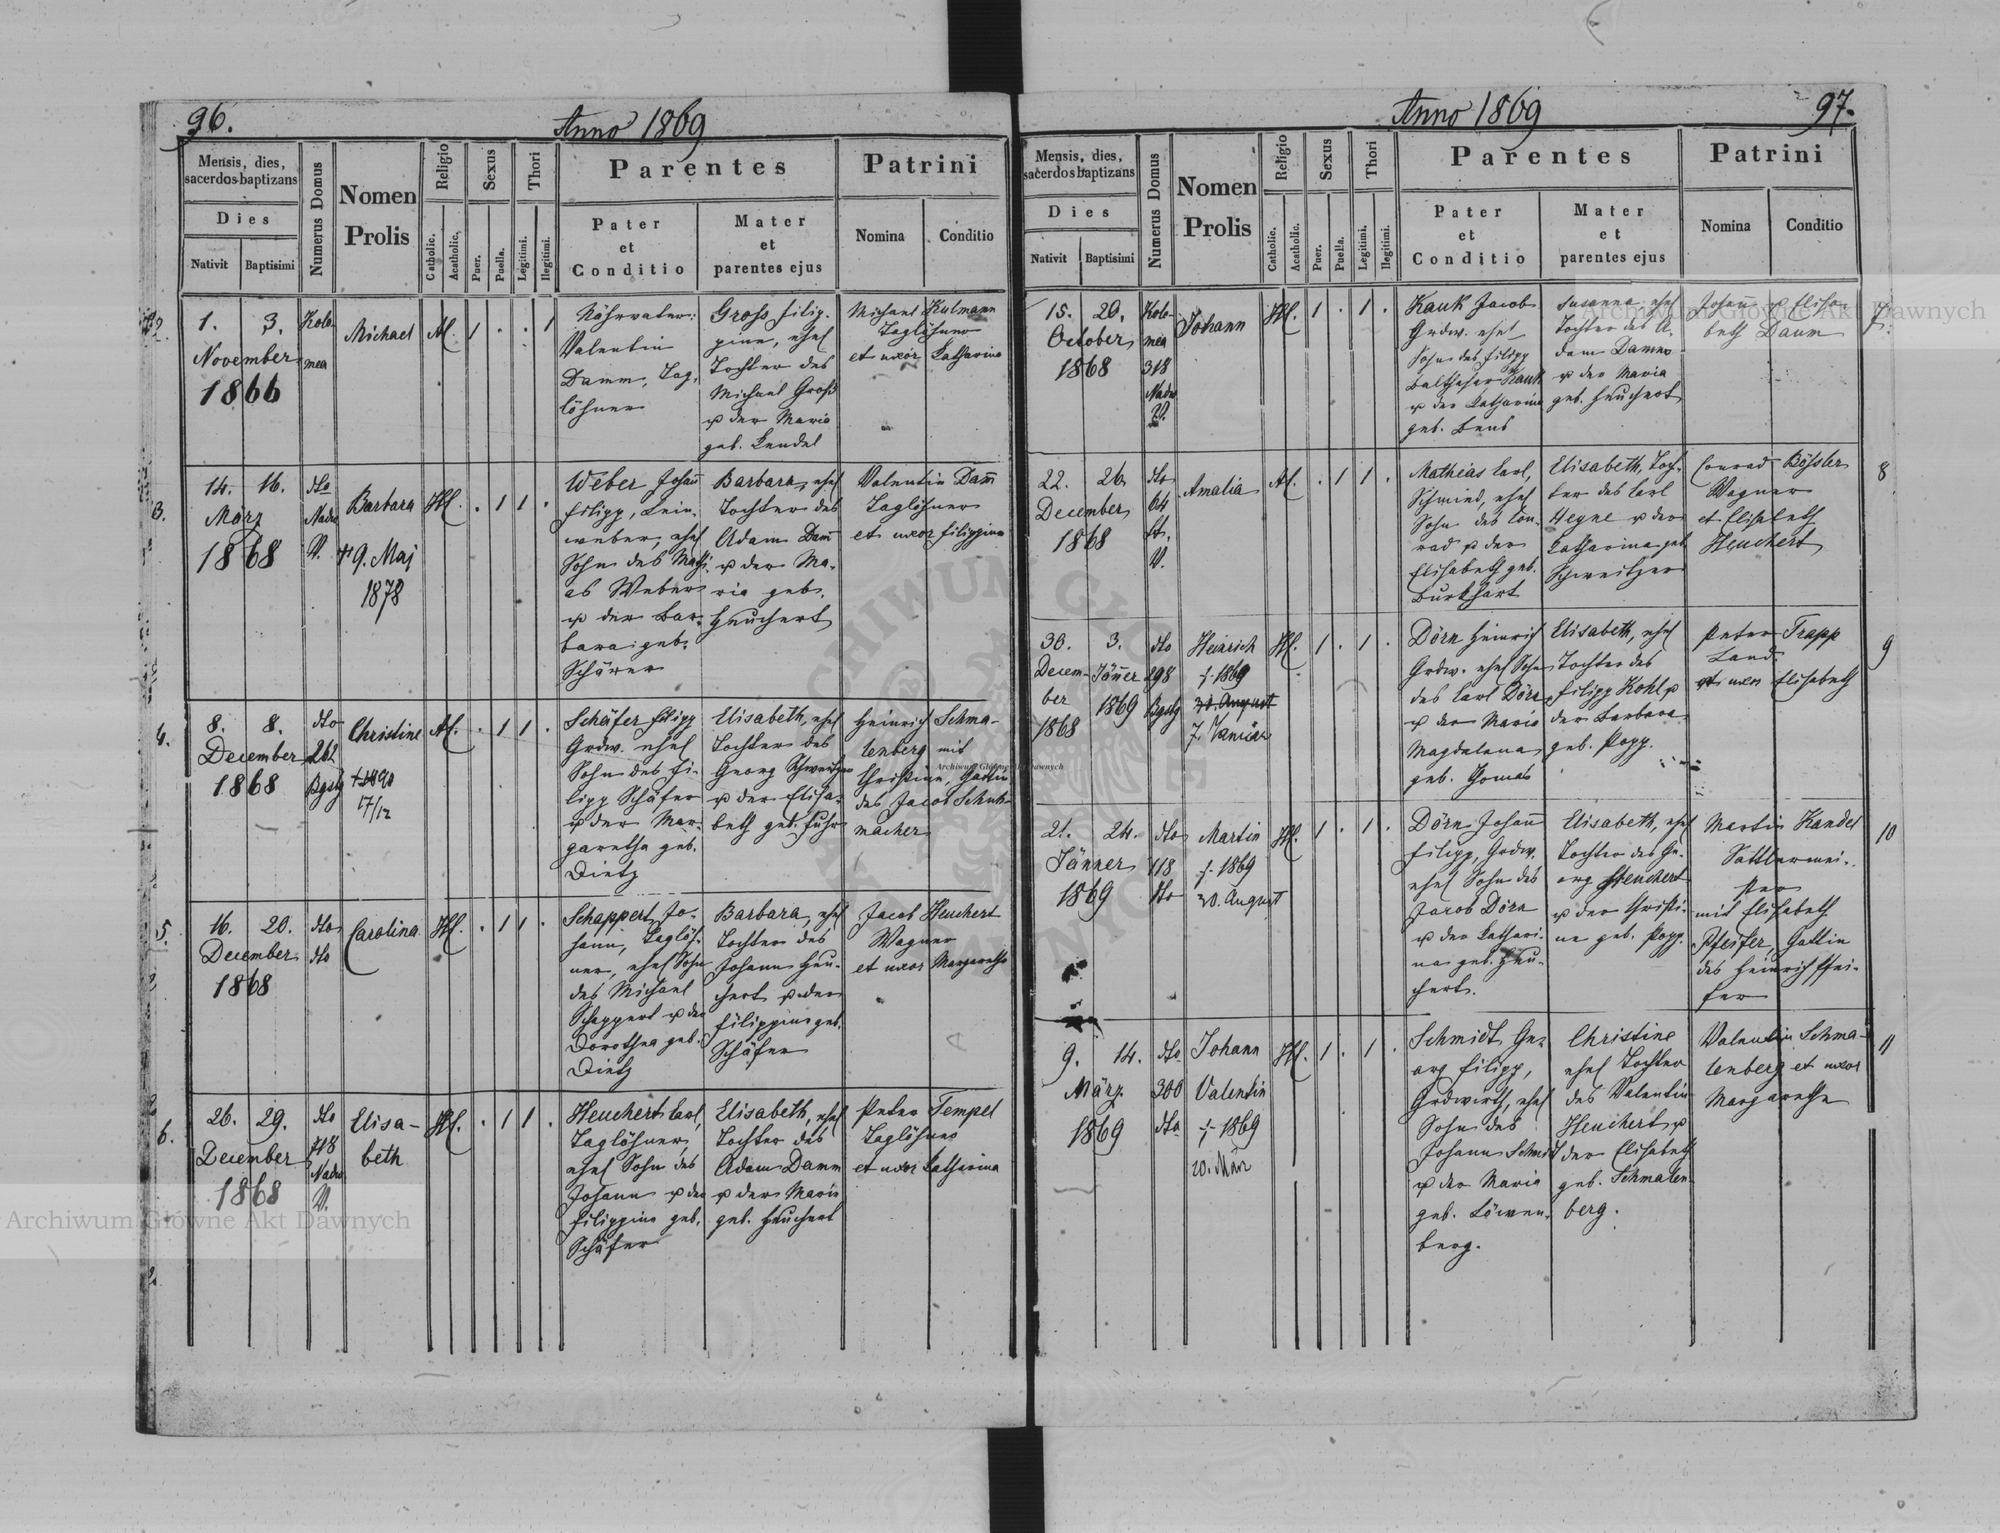 96.
Anno 1869
Mensis, dies,
sacerdos baptizans
Dies
Nativit
Baptisimi
Numerus Domus
Nomen
Prolis
Religio
Catholic.
Acatholic.
Sexus
Puer.
Puella.
Thori
Legitimi.
Ilegitimi.
Parentes
Pater
et
Conditio
Mater
et
parentes ejus
Patrini
Nomina
Conditio
1. 3.
November
1866
Kolo-
mea
Michael
1 . . 1
Nährvater:
Valentin
Damm, Tag-
löhner
Gross Filip-
pine, ehel
Tochter des
Michael Groß
u der Maria
geb. Kendel
Michael Kulmann
Taglöhner
et uxor Katharina
3.
14. 16.
März
1868
dto
V.
Barbara
† 9. Maj
1878
. 1 1 .
Weber Johañ
Filipp, Lein-
weber, ehel
Sohn des Mathi-
as Weber
u der Bar-
bara geb.
Schärer
Barbara, ehel
Tochter des
Adam Dam̄
u der Ma-
ria geb.
Heuchert
Valentin Dam̄
Taglöhner
et uxor Filippina
4.
8. 8.
December
1868
dto
262
Bgstg
Christine
†1890
17/12
. 1 1 .
Schäfer Filipp
Grdw. ehel
Sohn des Fi-
lipp Schäfer
u der Mar-
garetha geb.
Dietz
Elisabeth, ehel
Tochter des
Georg Schweitzer
u der Elisa-
beth geb. Fuhr
Heinrich Schma-
lenberg mit
Christine, Gattin
des Jacob Schuh-
macher
5.
16. 20.
December
1868
dto
dto
Carolina
. 1 1 .
Schappert Jo-
hann, Taglöh-
ner, ehel Sohn
des Michael
Schappert u der
Dorothea geb.
Dietz
Barbara, ehel
Tochter des
Johann Heu-
chert u der
Filippine geb.
Schäfer
Jacob Heuchert
Wagner
et uxor Margaretha
6.
26. 29.
December
1868
dto
V.
Elisa-
beth
. 1 1 .
Heuchert Carl,
Taglöhner,
ehel Sohn des
Johann u der
Filippine geb.
Schäfer
Elisabeth, ehel
Tochter des
Adam Damm
u der Maria
geb. Heuchert
Peter Tempel
Taglöhner
et uxor Katharina
Anno 1869
97.
Mensis, dies,
sacerdos baptizans
Dies
Nativit
Baptisimi
Numerus Domus
Nomen
Prolis
Religio
Catholic.
Acatholic.
Sexus
Puer.
Puella.
Thori
Legitimi.
Ilegitimi.
Parentes
Pater
et
Conditio
Mater
et
parentes ejus
Patrini
Nomina
Conditio
15. 20.
October
1868
Kolo-
mea
318
Johann
1 . 1 .
Kauk Jacob
Grdw. ehel
Sohn des Filipp
Balthasar Kauk
u der Katharina
geb. Bens
Susanna, ehel
Tochter des A-
dam Damm
u der Maria
geb. Heuchert
Johañ u Elisa-
beth Daum
7.
22. 26.
December
1868
dto
64
V.
Amalia
. 1 1 .
Mathias Carl,
Schmied, ehel
Sohn des Con-
rad u der
Elisabeth geb.
Burkhart
Elisabeth, Toch-
ter des Carl
Heyne u der
Katharina geb
Schweitzer
Conrad Bößler
Wagner
et Elisabeth
Heuchert
8
30. 3.
Decem- Jäñer
ber 1869
1868
dto
298
Bgstg
Heinrich
† 1869
31. August
7. Januar
1 . 1 .
Dörn Heinrich
Grdw. ehel Sohn
des Carl Dörn
u der Maria
Magdalena
geb. Thomas
Elisabeth, ehel
Tochter des
Filipp Kohl u
der Barbara
geb. Popp.
Peter Trapp
Land.
et uxor Elisabeth
9
21. 24.
Jänner
1869
dto
118
dto
Martin
† 1869
20. August
1 . 1 .
Dörn Johañ
Filipp, Grdw.
ehel Sohn des
Jacob Dörn
u der Kathari-
na geb. Heu-
chert.
Elisabeth, ehel
Tochter des Ge-
org Heuchert
u der Christi-
ne geb. Popp
Martin Kandel
Sattlermei-
ster
mit Elisabeth
Pfeifer, Gattin
des Heinrich Pfei-
fer
10
9. 14.
März
1869
dto
300
dto
Johann
Valentin
† 1869
20. März
1 . 1 .
Schmidt Ge-
org Filipp,
Grdwirth, ehel
Sohn des
Johann Schmidt
u der Maria
geb. Löwen-
berg.
Christine
ehel Tochter
des Valentin
Heuchert u
der Elisabeth
geb. Schmalen-
berg.
Valentin Schma-
lenberg et uxor
Margaretha
11
Archiwum Główne Akt Dawnych
Archiwum Główne Akt Dawnych
Archiwum Główne Akt Dawnych